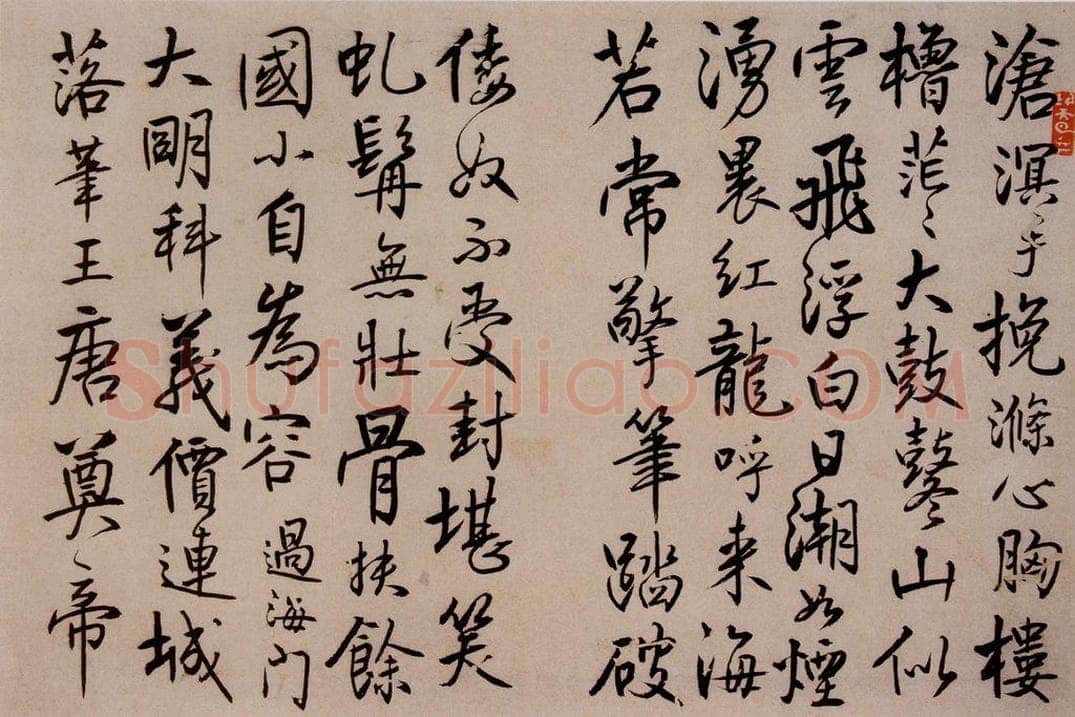 滄溟手挽滌心胸樓
櫓茫〻大鼓鼕山似
雲飛浮白日潮如煙
湧裹紅龍呼来海
若常擎筆踏破
倭奴不受封堪笑
虬髯無壯骨扶餘
國小自為容過海門
大明科義價連城
落筆王唐奠〻帝
Shufaziliao.COM